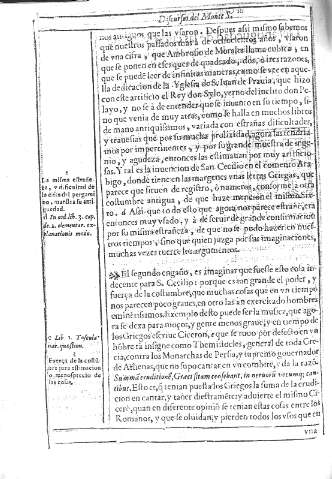 Discursos del Monte S.
nos antiguos que las vsaron. Despues assi mismo sabemos
que nuestros passados más de ochocientos años, vsaron
de vna cifra, que Ambrosio de Morales llama cubica, en
que se ponen en esquies de quadrado, dos, ò tres razones,
que se puede leer de infinitas maneras, como se vee en aque-
lla dedicacion de la Yglesia de S. Iuan de Prauia, que hizo
con este artificio el Rey don Sylo, yerno del inclito don Pe-
layo, y no se à de entender que se inuento en su tiempo, si-
no que venia de muy atras, como se halla en muchos libros
de mano antiquissimos, variada con estrañas dificultades,
y trauesias que por su mucha prolixidad agora las tendria-
mos por impertinentes, y por su grande muestra de inge-
nio, y agudeza, entonces las estimauan por muy artificio-
sas. Y tal es la inuencion de San Cecilio en el comento Ara-
bigo, donde tienen las margenes vnas letras Griegas, que
parece que siruen de registro, ò numeros, conforme a otra
costumbre antigua, de que haze mencion el mismo Si-
ro. d Assi que todo esto que agora nos parece estraño, era
entonces muy vsado, y à de seruir de grande confirmacion
por su misma estrañeza, de que no se pudo hazer en nues-
tros tiempos, sino que quien juzga por sus imaginaciones,
muchas vezes tuerce los argumentos.
La misma estrañe-
za, y dificultad de
la letra del pergami-
no, muestra su anti-
guedad.
El segundo engaño, es imaginar que fuesse esto cosa in-
decente para S. Cecilio: porque es tan grande el poder, y
fuerça de la costumbre, que muchas cosas que en vn tiempo
nos parecen poco graues, en otro las an exercitado hombres
eminentissimos. Exemplo desto puede ser la musica, que ago-
ra se dexa para moços, y gente menos graue, y en tiempo de
los Griegos escriue Ciceron, e que se tuuo por defecto en vn
hõbre tã insigne como Themistocles, general de toda Gre-
cia, contra los Monarchas de Persia, y supremo gouernador
de Athenas, que no supo cantar en vn combite, e da la razõ.
Summã eruditionẽ, Græci sitam censebant, in neruorũ vocumq; can-
tibus. Esto es, q̃ tenian puesta los Griegos la suma de la erudi-
cion en cantar, y tañer diestramẽte: y aduierte el mismo Ci-
cerõ, quan en diferente opinion se tenian estas cosas entre los
Romanos, y que se oluidan, y pierden todos los vsos que en
e Lib. 1. Tuscula-
nar. quæstion.
Fuerça de la costũ-
bre para estimacion
ò menosprecio de
las cosas.
vna